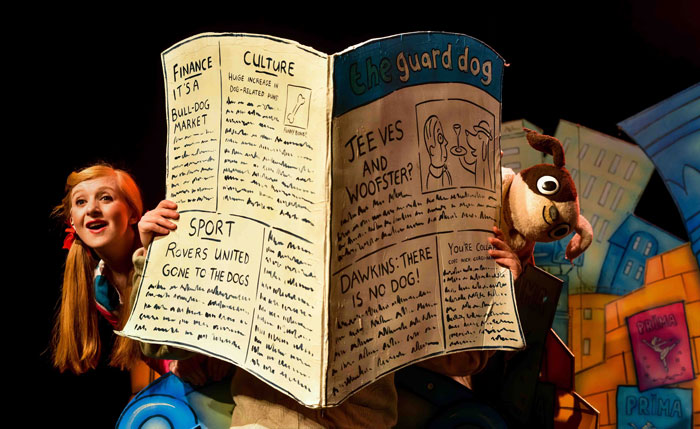 FINANCE
IT'S A
BULL-DOG
MARKET
CULTURE
HUGE INCREASE IN
DOG-RELATED PUNS
SPORT
ROVERS UNITED
GONE TO THE DOGS
the guard dog
JEEVES
AND
WOOFSTER?
DAWKINS: THERE
IS NO DOG!
YOU'RE COLLA
PRIMA
PRIMA